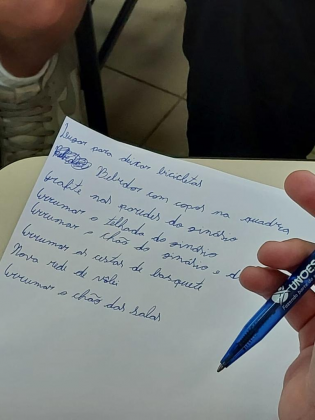 Lugar para deixar bicicletas
Bebedor com copos na quadra
Grafite nas paredes do ginásio
Arrumar o telhado do ginásio
Arrumar o chão do ginásio e d
Arrumar as cestas de basquete
Nova rede de vôlei
Arrumar o chão das salas
UNOES